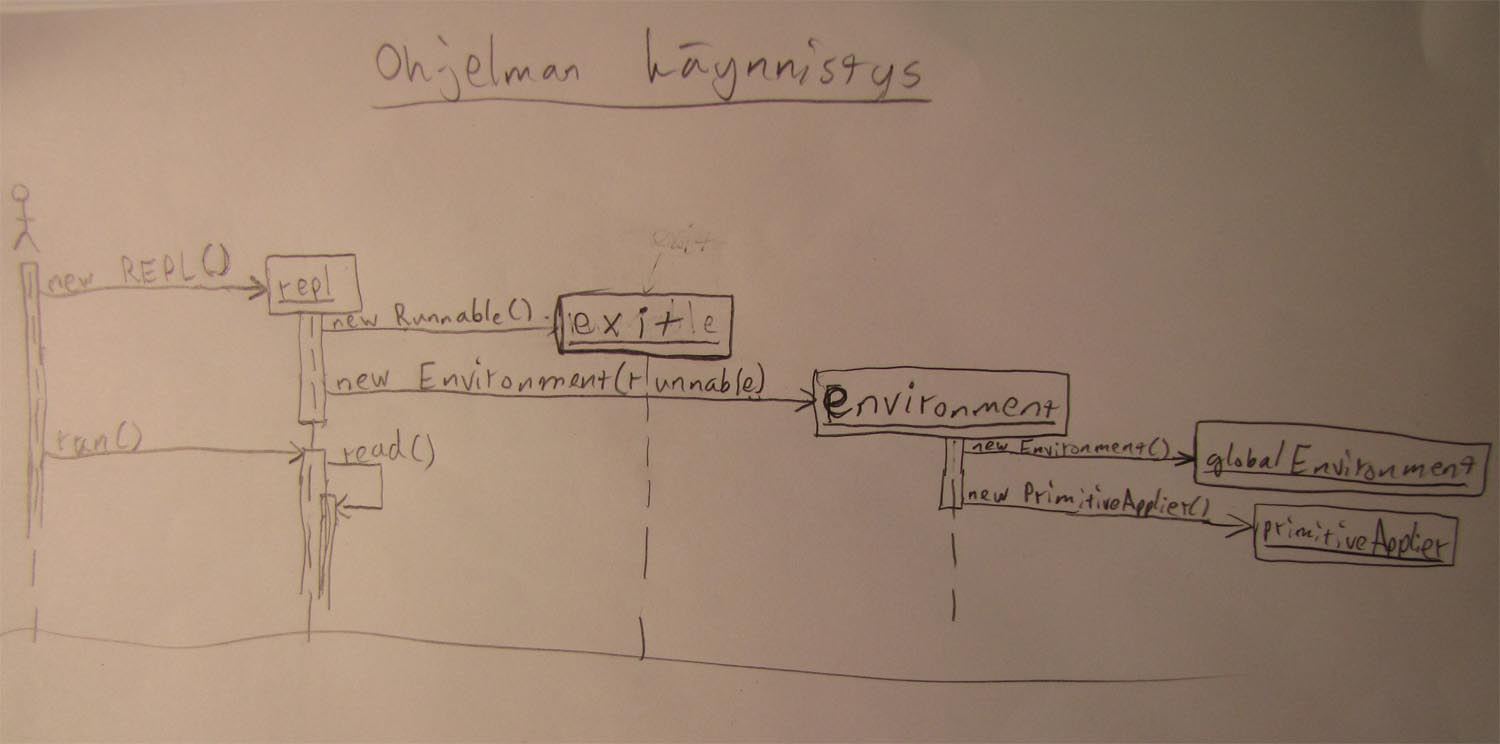 Ohjelman käynnistys
exit
new REPL()
repl
new Runnable()
exit
new Environment(runnable)
environment
run()
read()
new Environment()
globalEnvironment
new PrimitiveApplier()
primitiveApplier